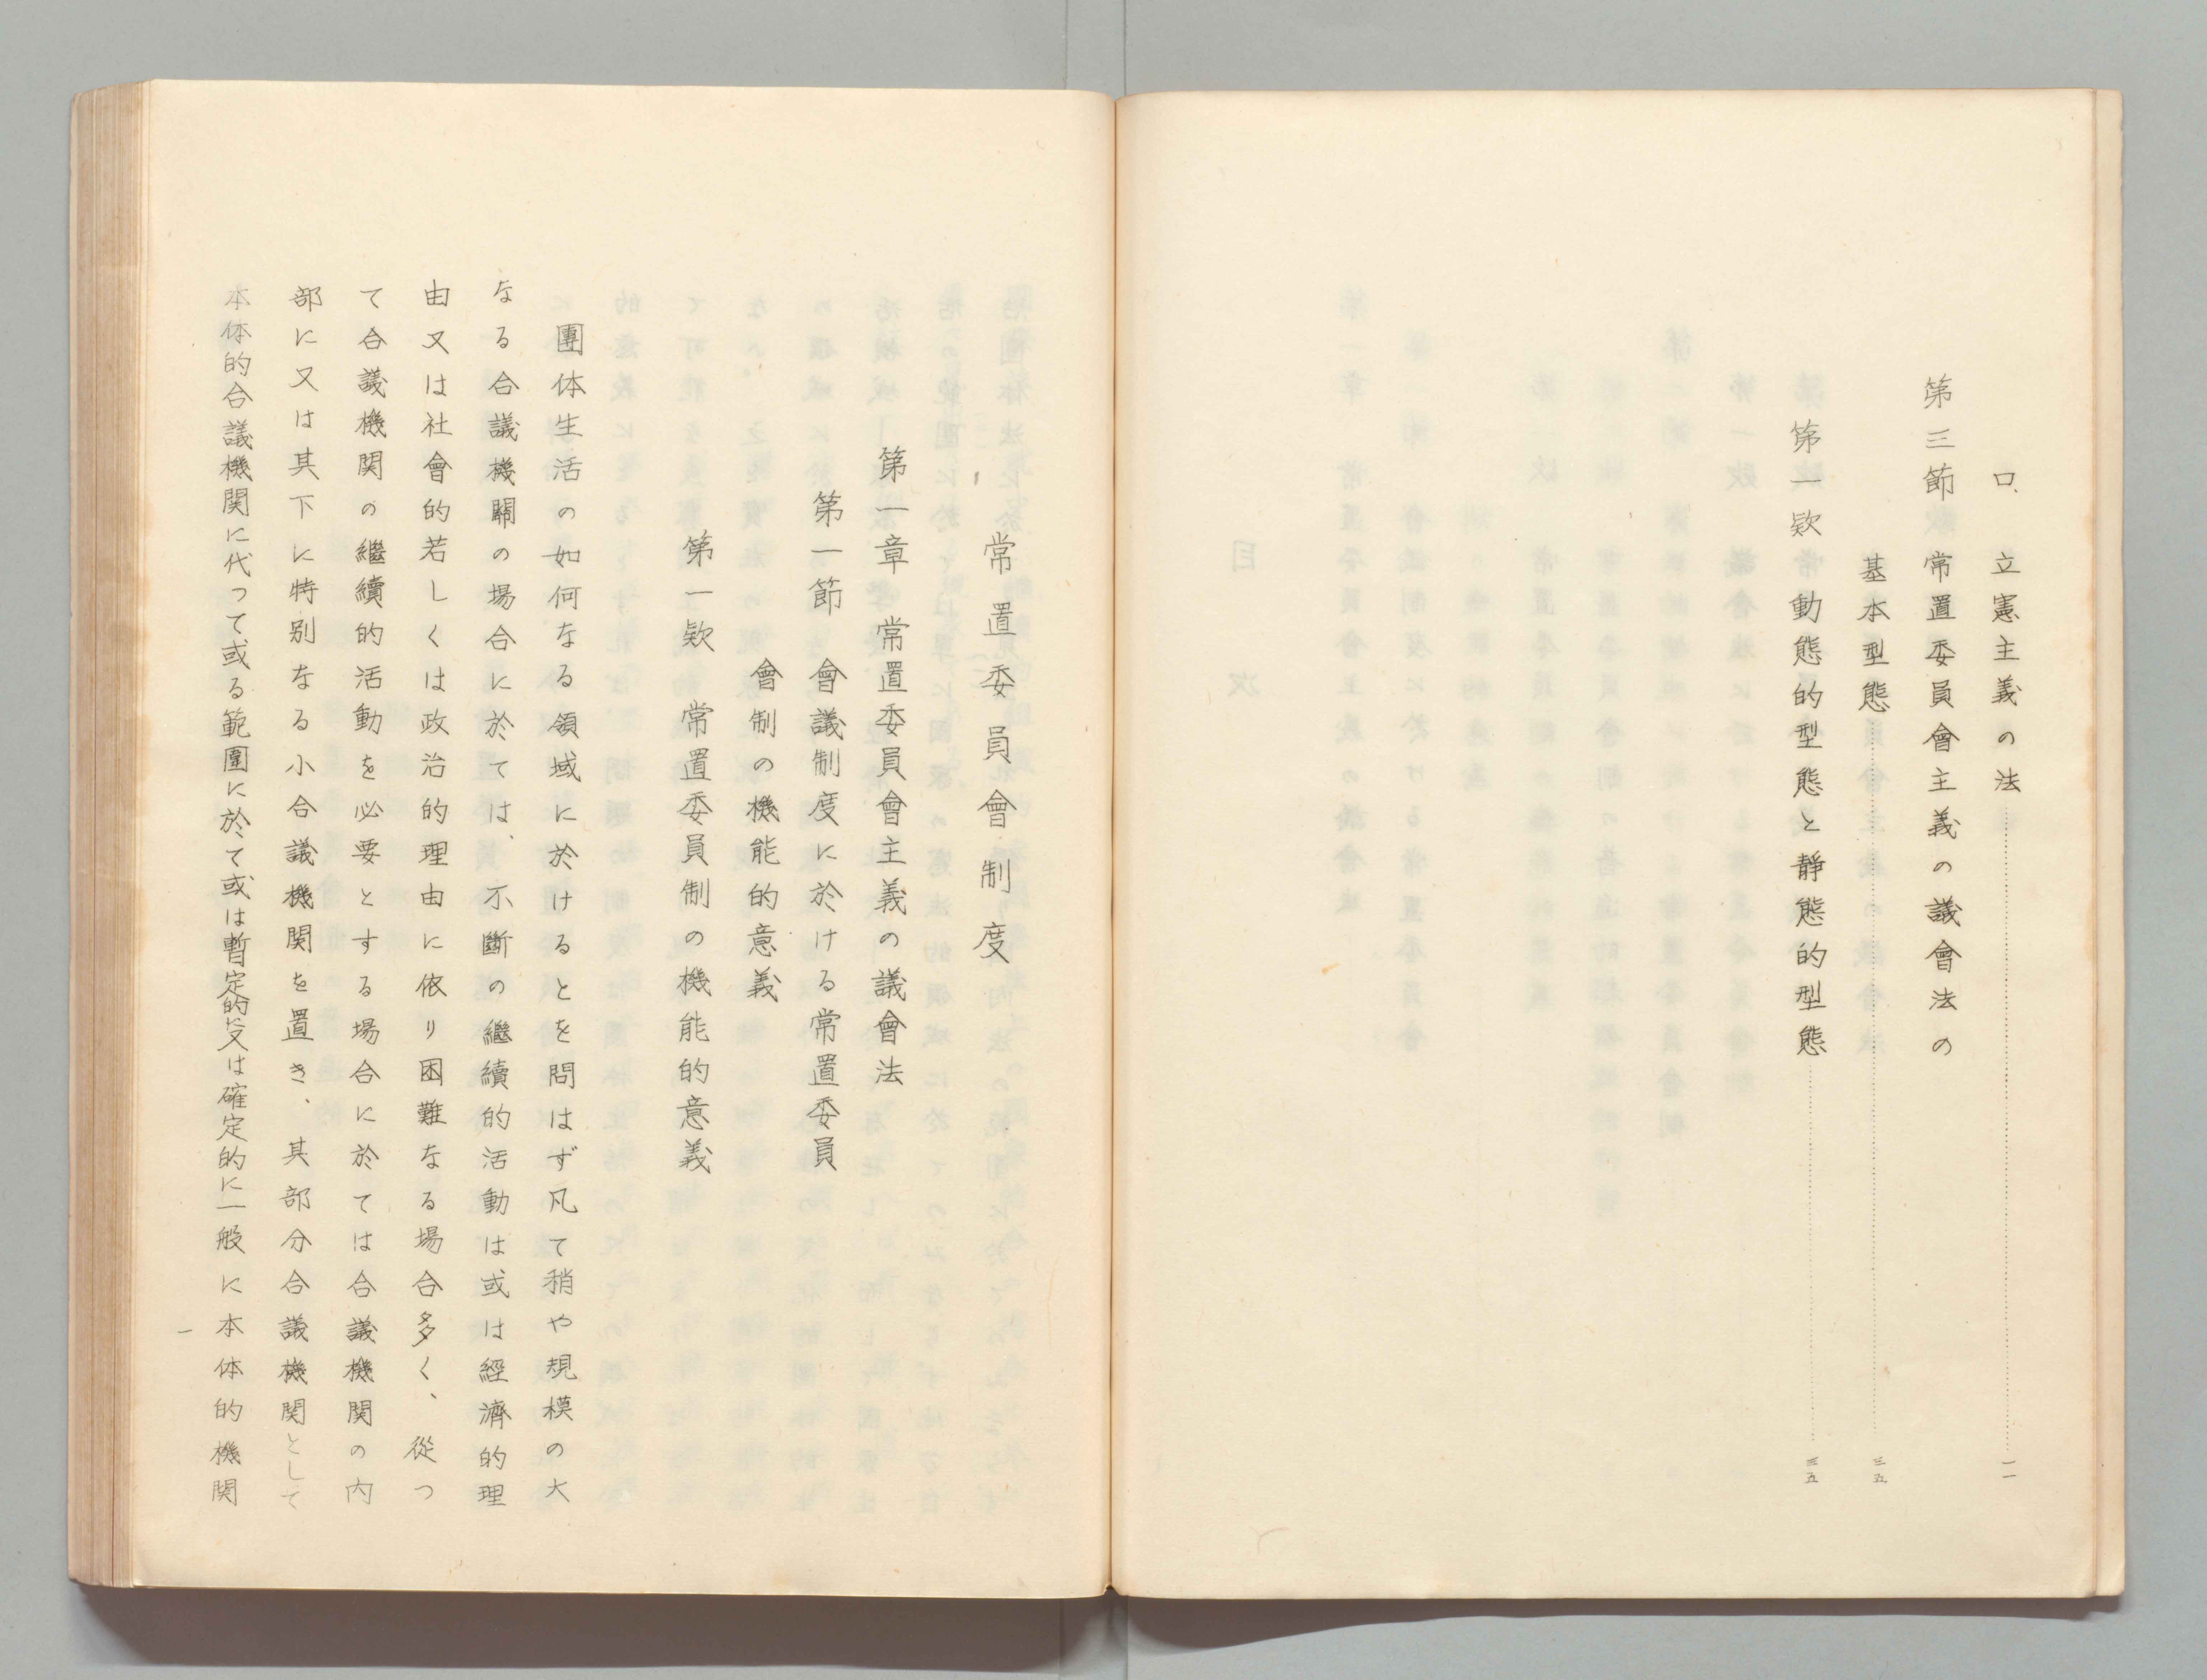 ロ、立憲主義の法……一一
第三節 常置委員會主義の議會法の
基本型態……三五
第一欵 動態的型態と靜態的型態……三五
常置委員會制度
第一章 常置委員會主義の議會法
第一節 會議制度に於ける常置委員
會制の機能的意義
第一欵 常置委員制の機能的意義
團体生活の如何なる領域に於けるとを問はず凡て稍や規模の大
なる合議機關の場合に於ては、不斷の繼續的活動は或は經濟的理
由又は社會的若しくは政治的理由に依り困難なる場合多く、從つ
て合議機関の繼續的活動を必要とする場合に於ては合議機関の内
部に又は其下に特別なる小合議機関を置き、其部分合議機関として
本体的合議機関に代って或る範圍に於て或は暫定的に又は確定的に一般に本体的機関
一